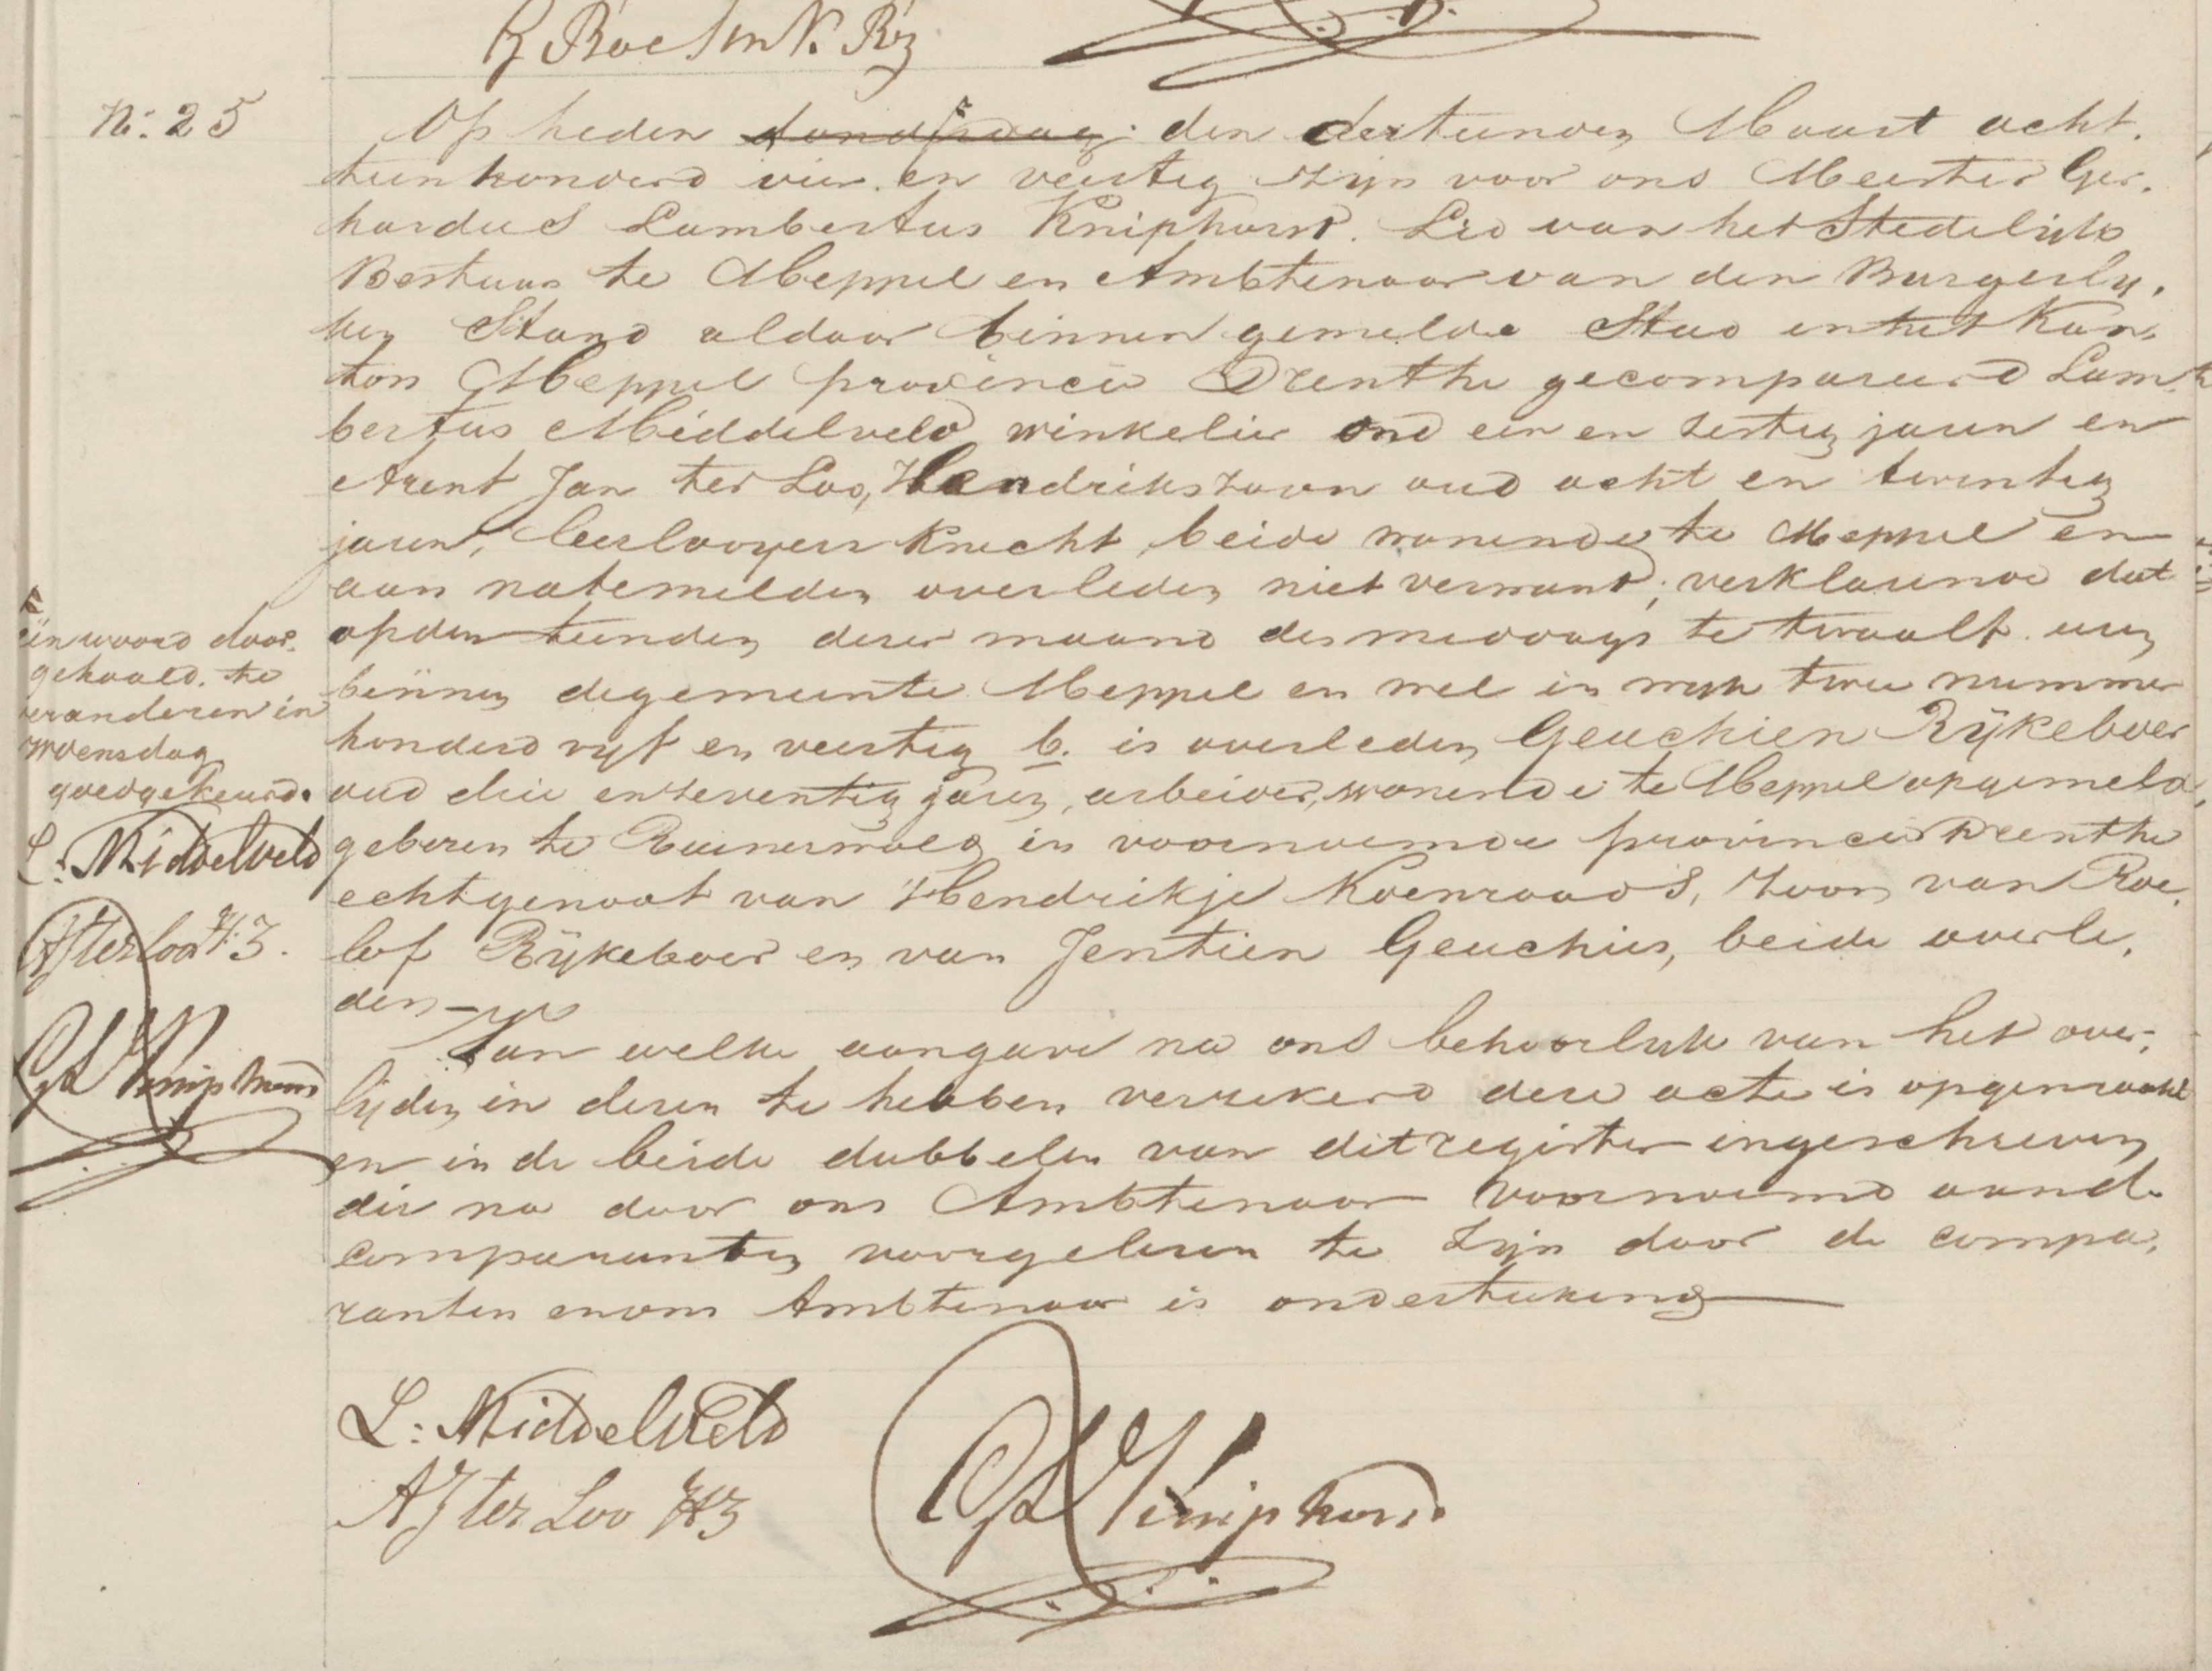 R Roelink Rz
No. 25
Op heden donderdag den dertienden Maart acht.
tienhonderd vier en veertig zijn voor ons Meester Ger.
hardus Lambertus Kniphorst. Lid van het Stedelijk
Bestuur te Meppel en Ambtenaar van den Burgerly.
ken Stand aldaar binnen gemelde Stad en het Kan.
ton Meppel provincie Drenthe gecompareerd Lam
bertus Middelveld winkelier oud een en zestig jaren en
Arent Jan ter Loo, Hendrikszoon oud acht en twintig
jaren, leerlooyers knecht, beide wonende te Meppel en
aan natemelden overleden niet verwant; verklarende dat
op den tienden dezer maand des middags te twaalf uren
binnen de gemeente Meppel en wel in wijk twee nummer
honderd vijf en veertig b. is overleden Geuchien Rijkeboer
oud drie en zeventig jaren, arbeider, wonende te Meppel opgemeld,
geboren te Ruinerwold in voornoemde provincie Drenthe
echtgenoot van Hendrikje Koenraads, zoon van Roe.
lof Rijkeboer en van Jentien Geuchies, beide overle.
den —
Van welke aangave na ons behoorlijk van het over.
lijden in dezen te hebben verzekerd deze acte is opgemaakt
en in de beide dubbelen van dit register ingeschreven
die na door ons Ambtenaar voornoemd aan de
comparanten voorgelezen te zijn door de compa.
ranten en ons Ambtenaar is onderteekend
een woord door.
gehaald. te
veranderen in
woensdag
goedgekeurd.
L: Middelveld
AJ ter Loo Hz.
GL Kniphorst
L: Middelveld
AJ ter Loo Hz
GL Kniphorst